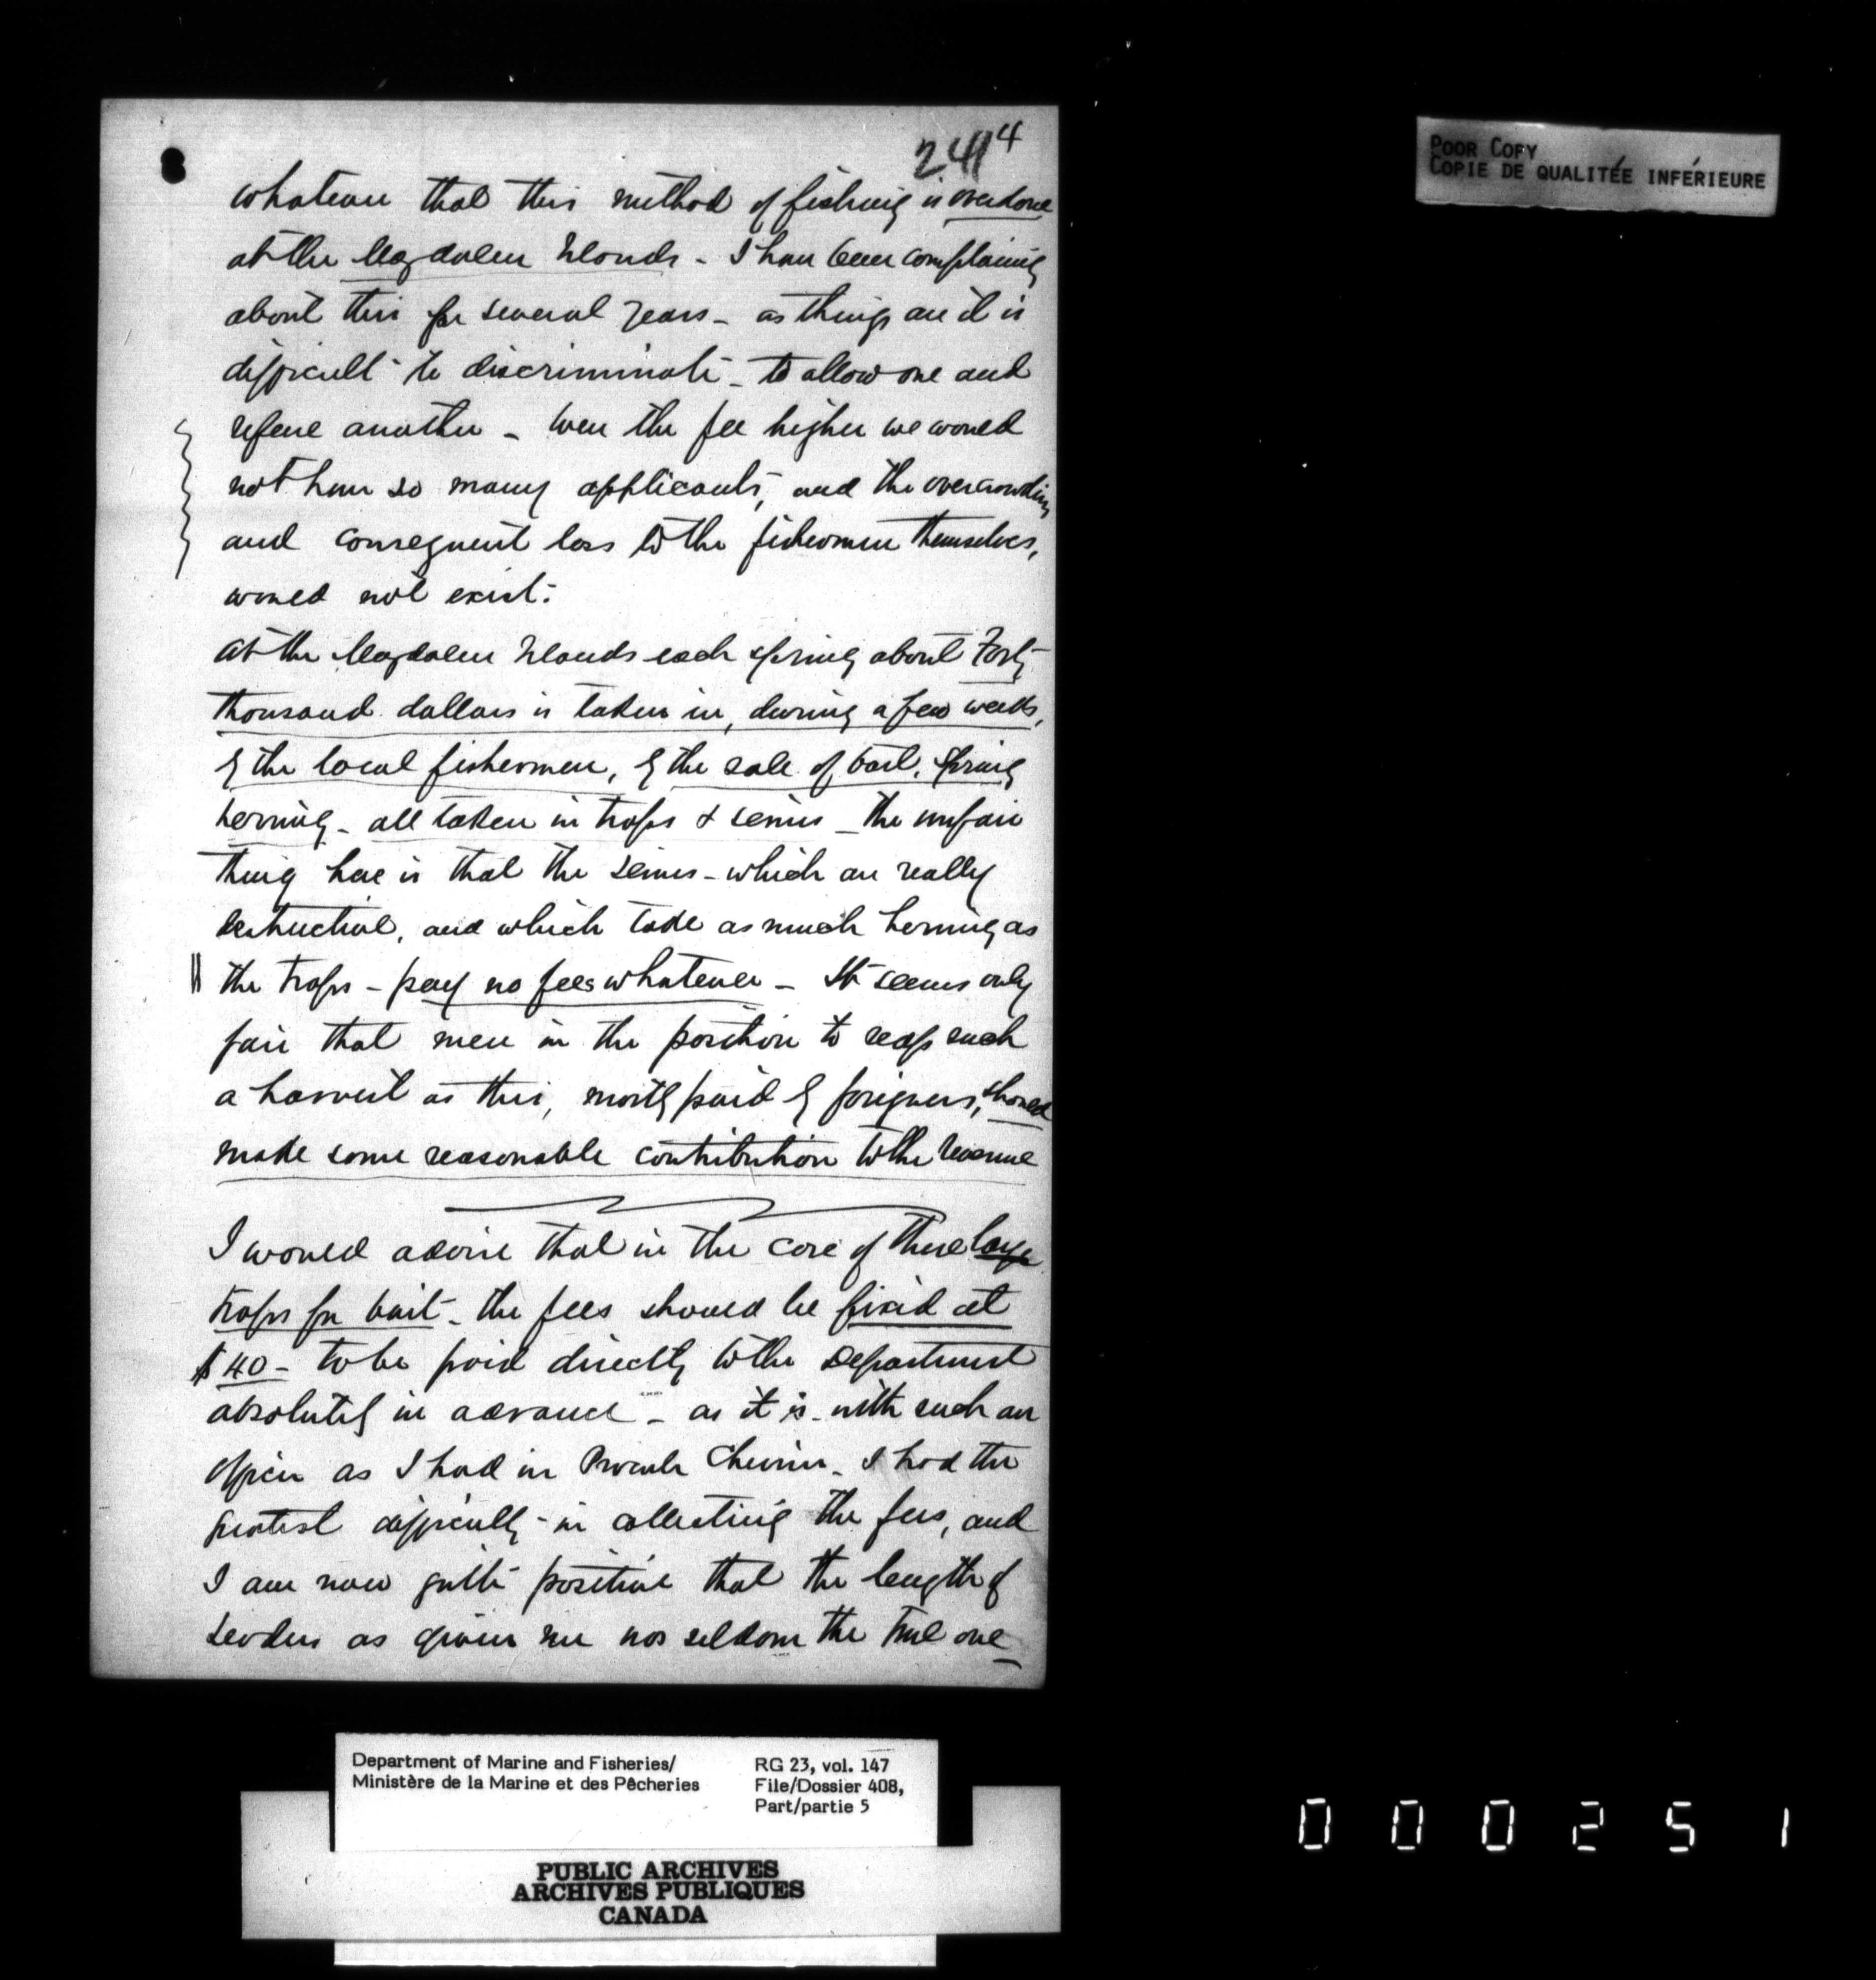 241 4
whatever that this method of fishing is overdone
at the Magdalen Islands - I have been complaining
about this for several years - as things are it is
difficult to discriminate - to allow one and
refuse another - were the fee higher we would
not have so many applicants, and the overcrowding
and consequent loss to the fishermen themselves,
would not exist.
At the Magdalen Islands each spring about Forty
thousand dollars is taken in, during a few weeks,
by the local fishermen, by the sale of bait, spring
herring - all taken in traps & seines - the unfair
thing here is that the seines - which are really
destructive, and which take as much herring as
the traps - pay no fees whatever - It seems only
fair that men in the position to reap such
a harvest as this, mostly paid by foreigners, should
make some reasonable contribution to the revenue
I would advise that in the case of these large
traps for bait - the fees should be fixed at
$40 - to be paid directly to the Department
absolutely in advance - as it is - with such an
officer as I had in Chevrier - I had the
greatest difficulty - in collecting the fees, and
I am now quite positive that the length of
leaders as given me was seldom the true one
POOR COPY
COPIE DE QUALITÉE INFÉRIEURE
Department of Marine and Fisheries/
Ministère de la Marine et des Pêcheries
RG 23, vol. 147
File/Dossier 408,
Part/partie 5
PUBLIC ARCHIVES
ARCHIVES PUBLIQUES
CANADA
000251